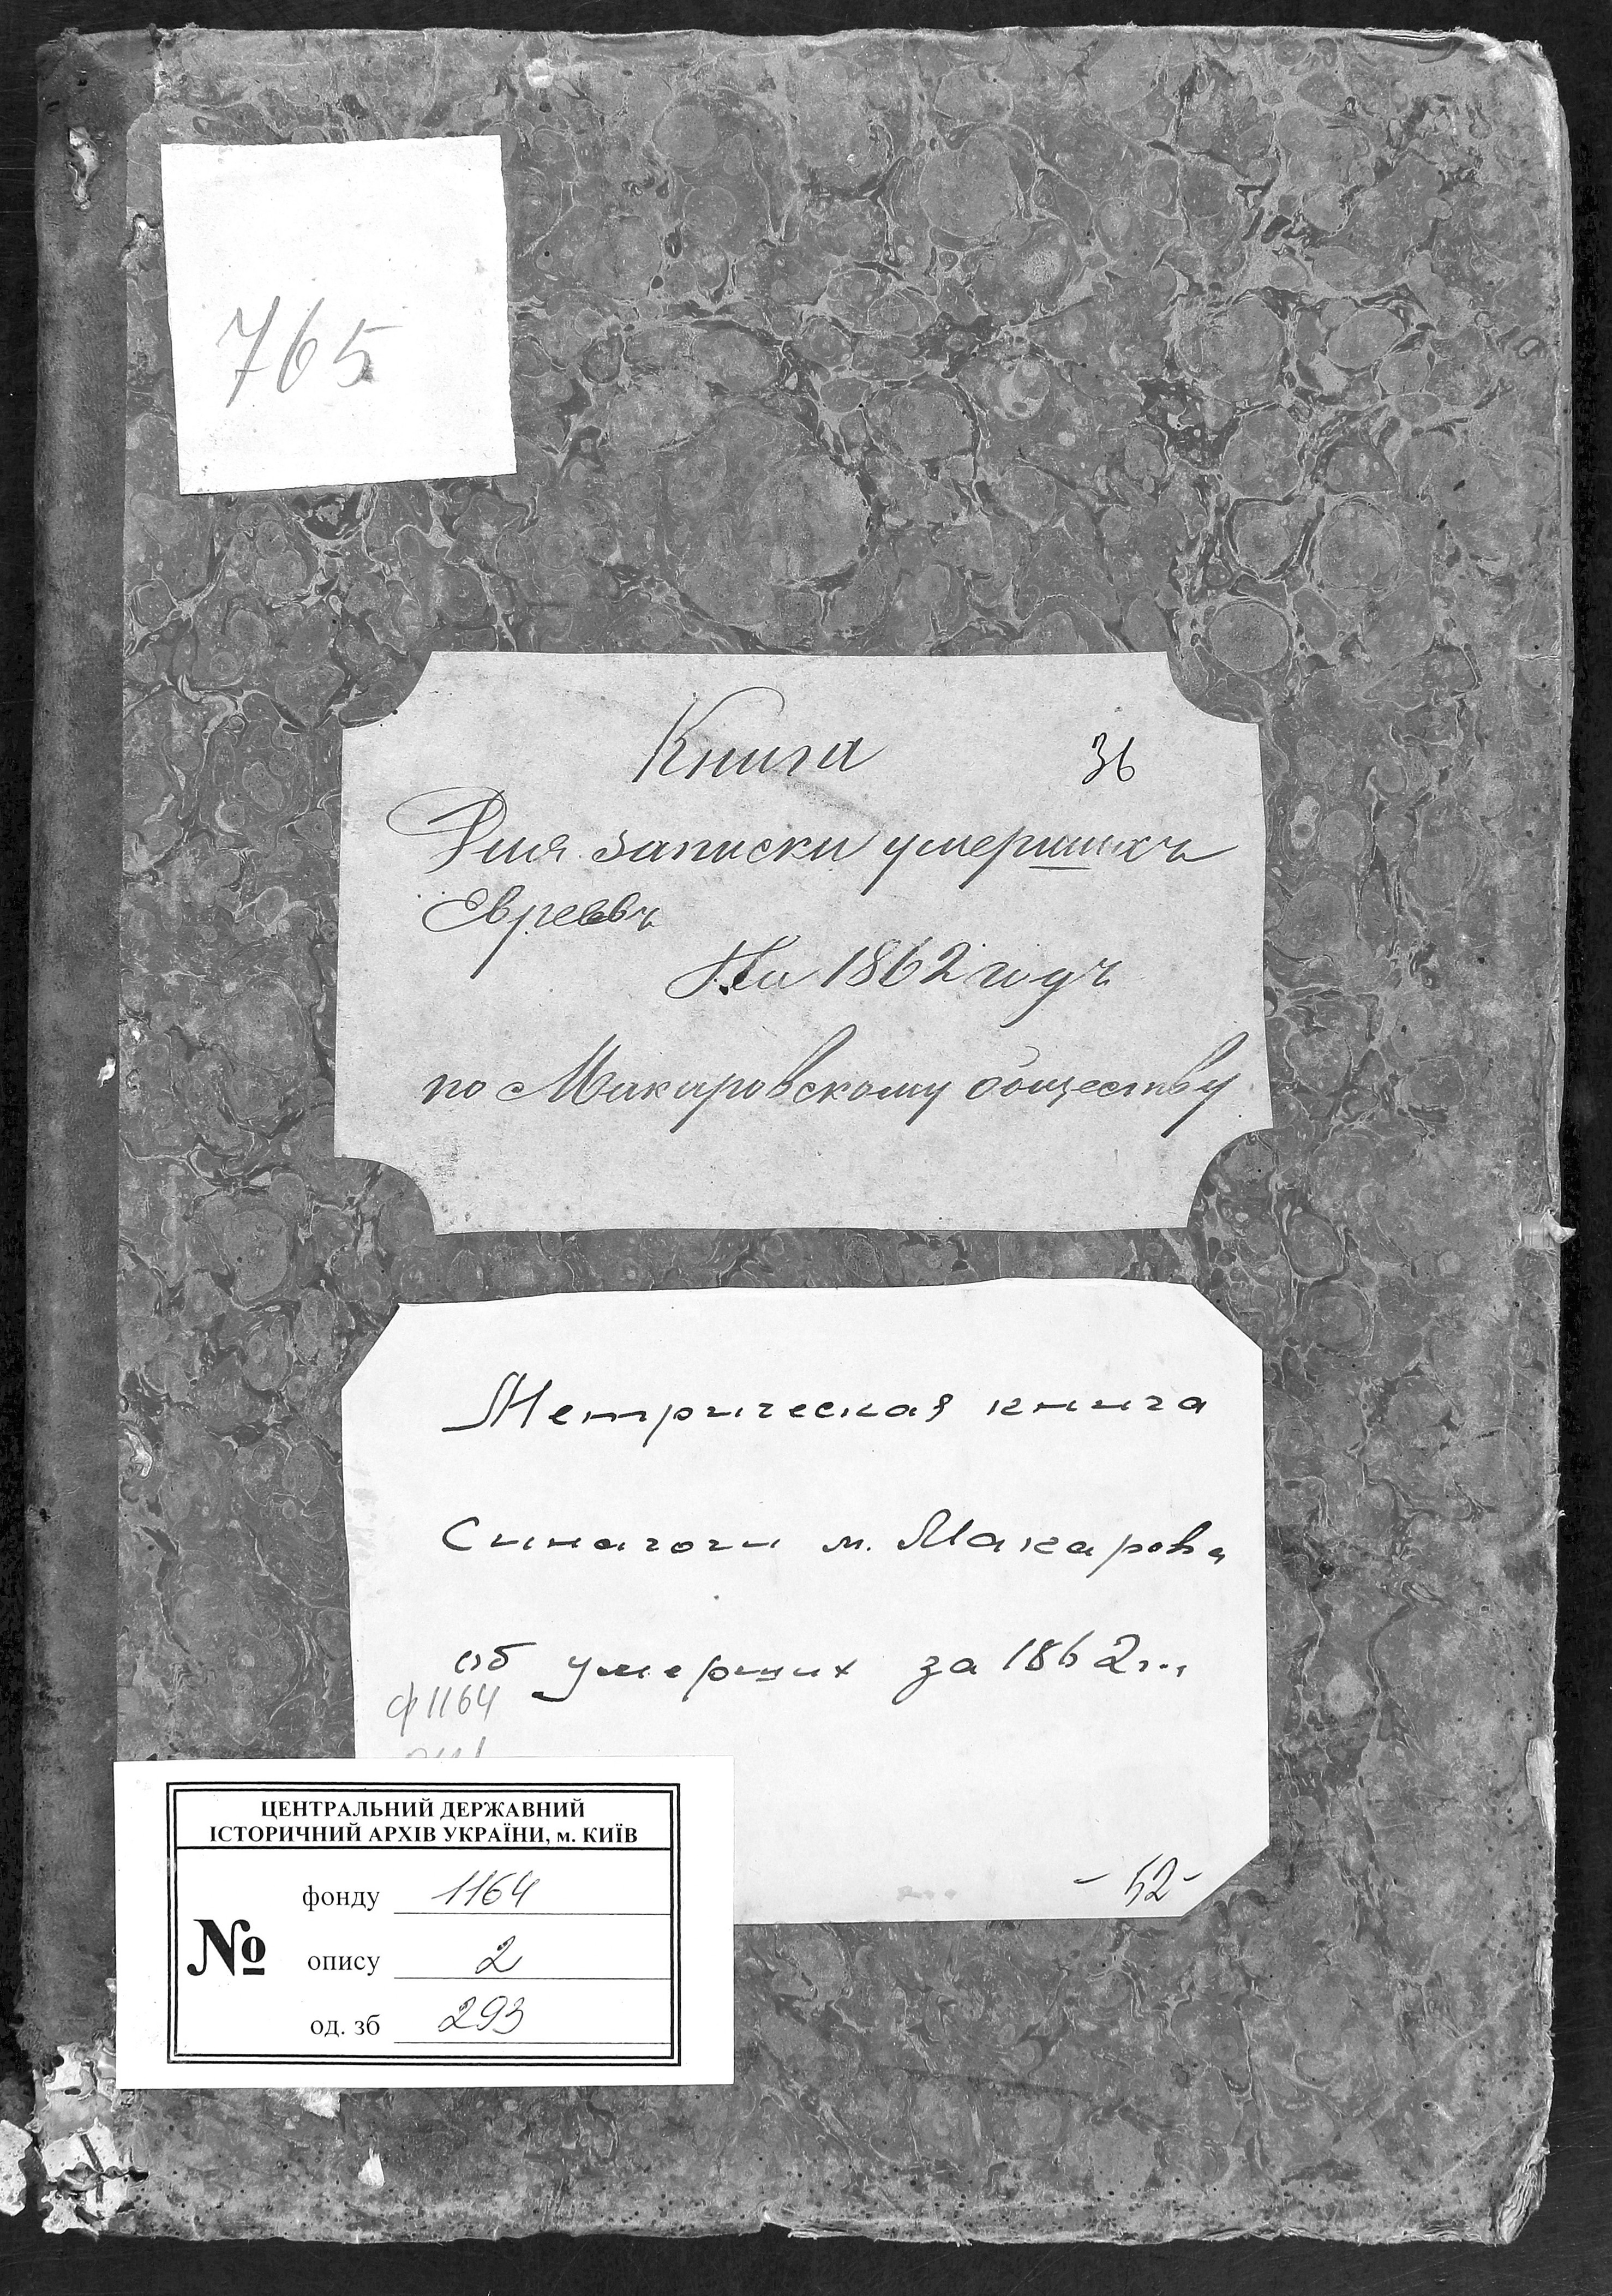 765
Книга 36
Для записки умершихъ
Евреевъ
На 1862 годъ
по Макаровскому обществу
Метрическая книга
Синагоги м. Макарова
об умерших за 1862 г.,
ф 1164
ЦЕНТРАЛЬНИЙ ДЕРЖАВНИЙ
ІСТОРИЧНИЙ АРХІВ УКРАЇНИ, м. КИЇВ
№
фонду 1164
опису 2
од. зб 293
- 52 -